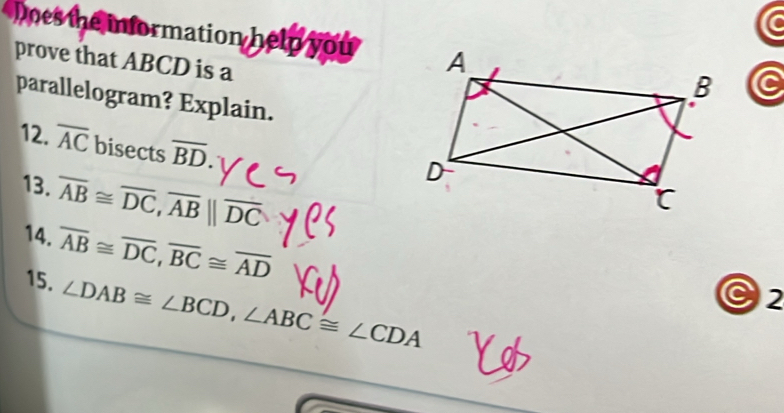 Does the information help you
prove that ABCD is a
parallelogram? Explain.
12. AC bisects BD. yes
13. AB ≅ DC, AB ∥ DC yes
14. AB ≅ DC, BC ≅ AD yes
15. ∠DAB ≅ ∠BCD, ∠ABC ≅ ∠CDA yes
A
B
D
C
C
C
C 2